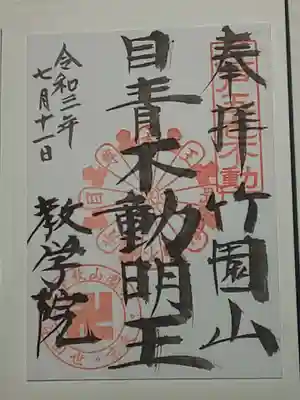 奉拝 竹園山
目青不動明王
教学院
令和二年
七月十一日